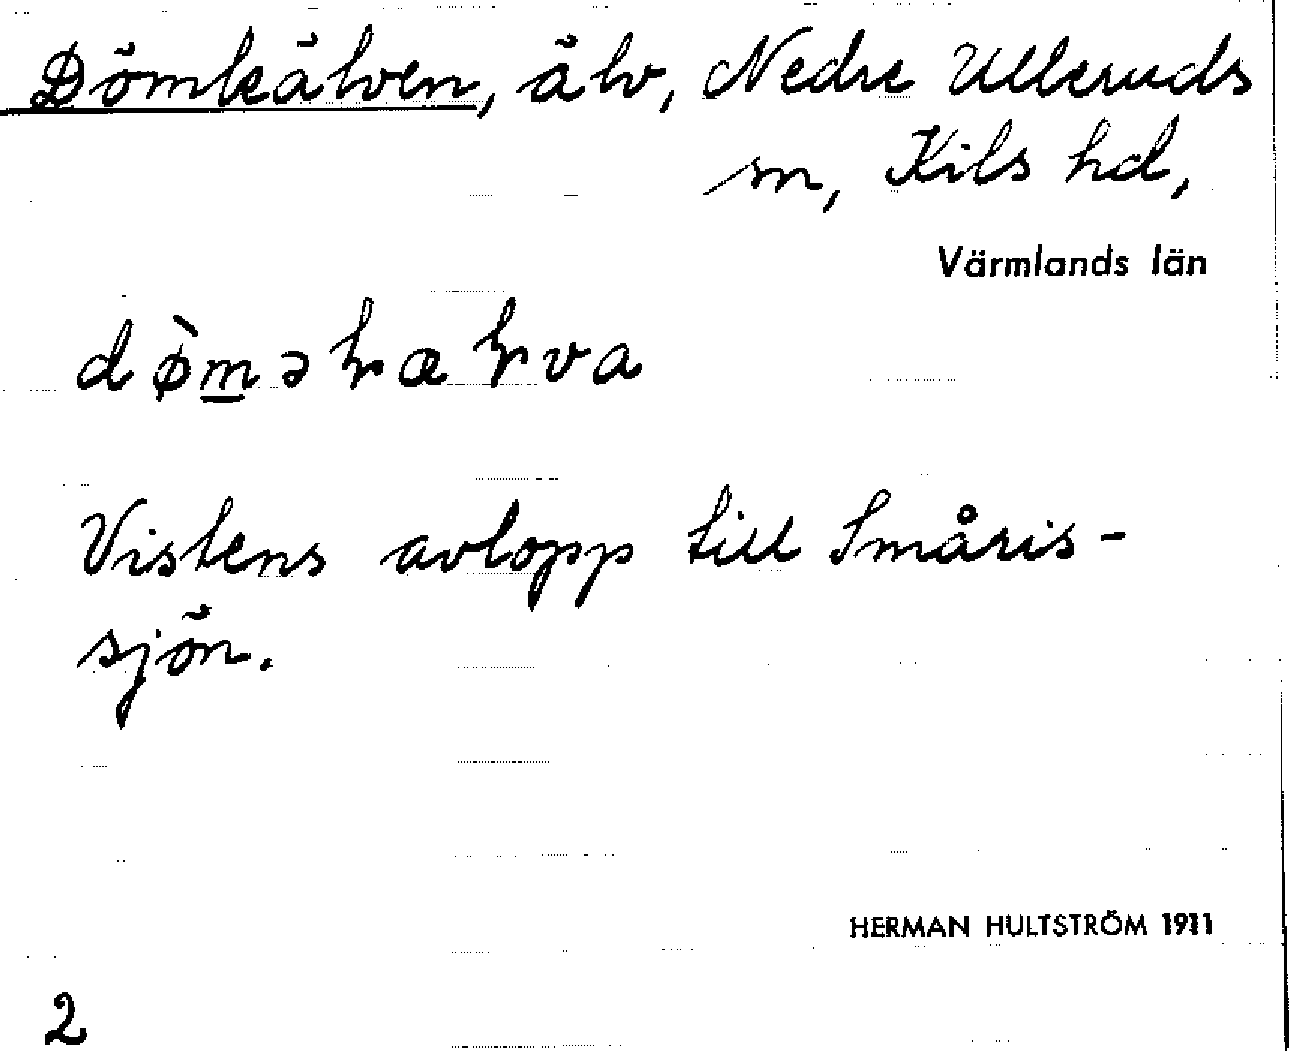 Dömleälven, älv, Nedre Ulleruds
sn, Kils hd,
Värmlands län
dø̀m̲əɫæɫva
Vistens avlopp till Småris-
sjön.
HERMAN HULTSTRÖM 1911
2